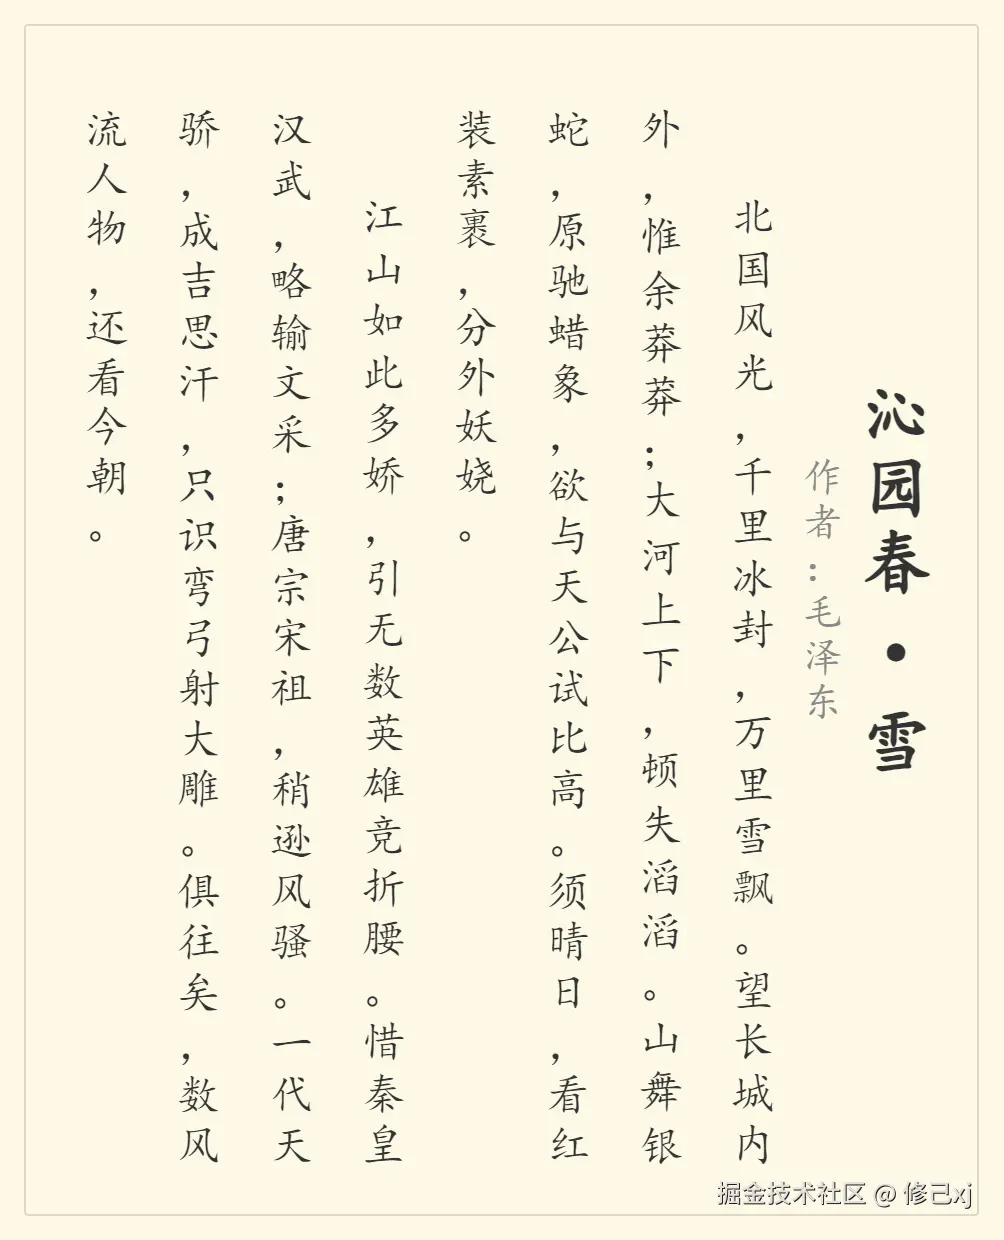 沁园春·雪
作者：毛泽东
北国风光，千里冰封，万里雪飘。望长城内
外，惟余莽莽；大河上下，顿失滔滔。山舞银
蛇，原驰蜡象，欲与天公试比高。须晴日，看红
装素裹，分外妖娆。
江山如此多娇，引无数英雄竞折腰。惜秦皇
汉武，略输文采；唐宗宋祖，稍逊风骚。一代天
骄，成吉思汗，只识弯弓射大雕。俱往矣，数风
流人物，还看今朝。
掘金技术社区 @ 修己xj